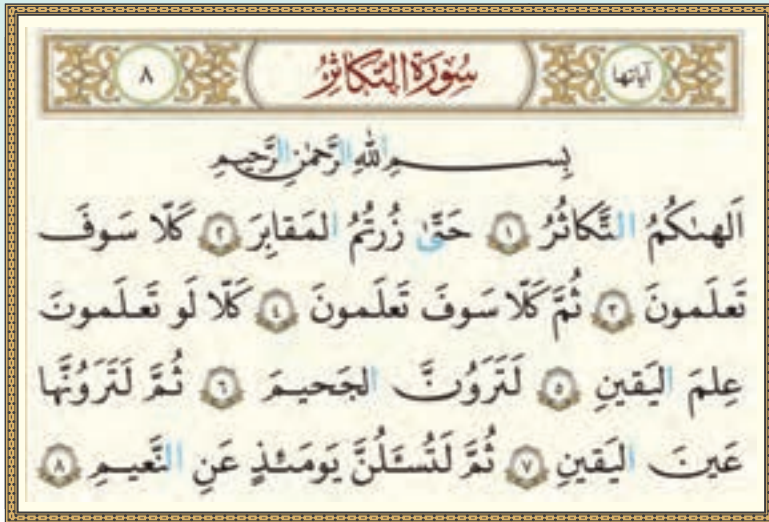 آیاتها سُورَةُ التَّكاثُرِ ٨
بِسمِ اللهِ الرَّحمٰنِ الرَّحیمِ
اَلهىٰكُمُ التَّكاثُرُ ١ حَتّىٰ زُرتُمُ المَقابِرَ ٢ كَلّا سَوفَ
تَعلَمونَ ٣ ثُمَّ كَلّا سَوفَ تَعلَمونَ ٤ كَلّا لَو تَعلَمونَ
عِلمَ الیَقینِ ٥ لَتَرَوُنَّ الجَحیمَ ٦ ثُمَّ لَتَرَوُنَّها
عَینَ الیَقینِ ٧ ثُمَّ لَتُسـَٔلُنَّ یَومَئِذٍ عَنِ النَّعیمِ ٨